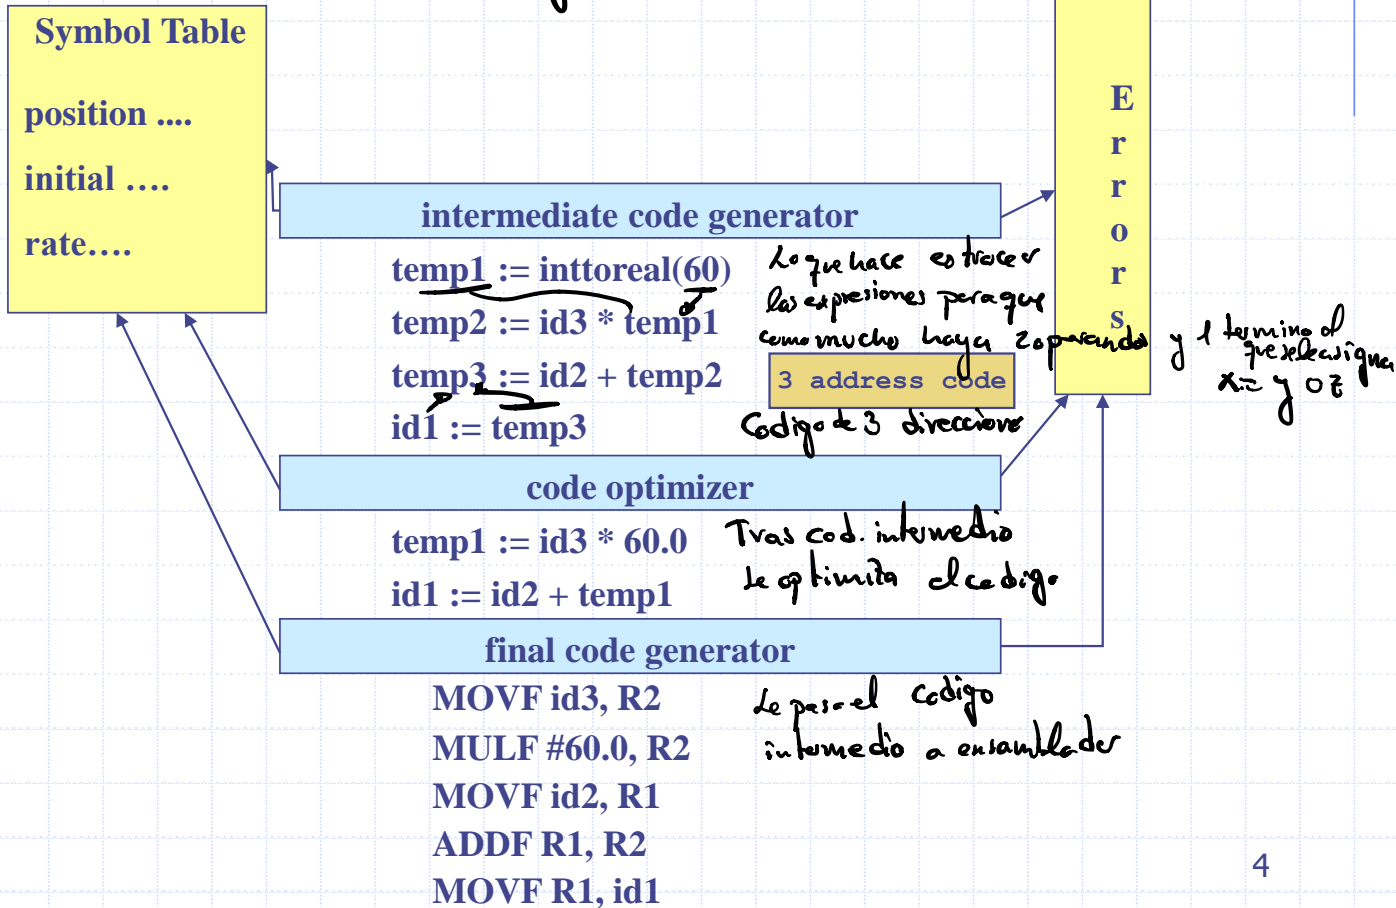 Symbol Table
position ....
initial ....
rate....
Errors
intermediate code generator
temp1 := inttoreal(60)
temp2 := id3 * temp1
temp3 := id2 + temp2
id1 := temp3
Lo que hace es
las expresiones para que
como mucho haya 2 operandos y 1 termino al
que se le asigna
x := y o z
3 address code
Codigo de 3 direcciones
code optimizer
temp1 := id3 * 60.0
id1 := id2 + temp1
Tras cod. intermedio
se optimiza el codigo
final code generator
MOVF id3, R2
MULF #60.0, R2
MOVF id2, R1
ADDF R1, R2
MOVF R1, id1
Se pasa el codigo
intermedio a ensamblador
4